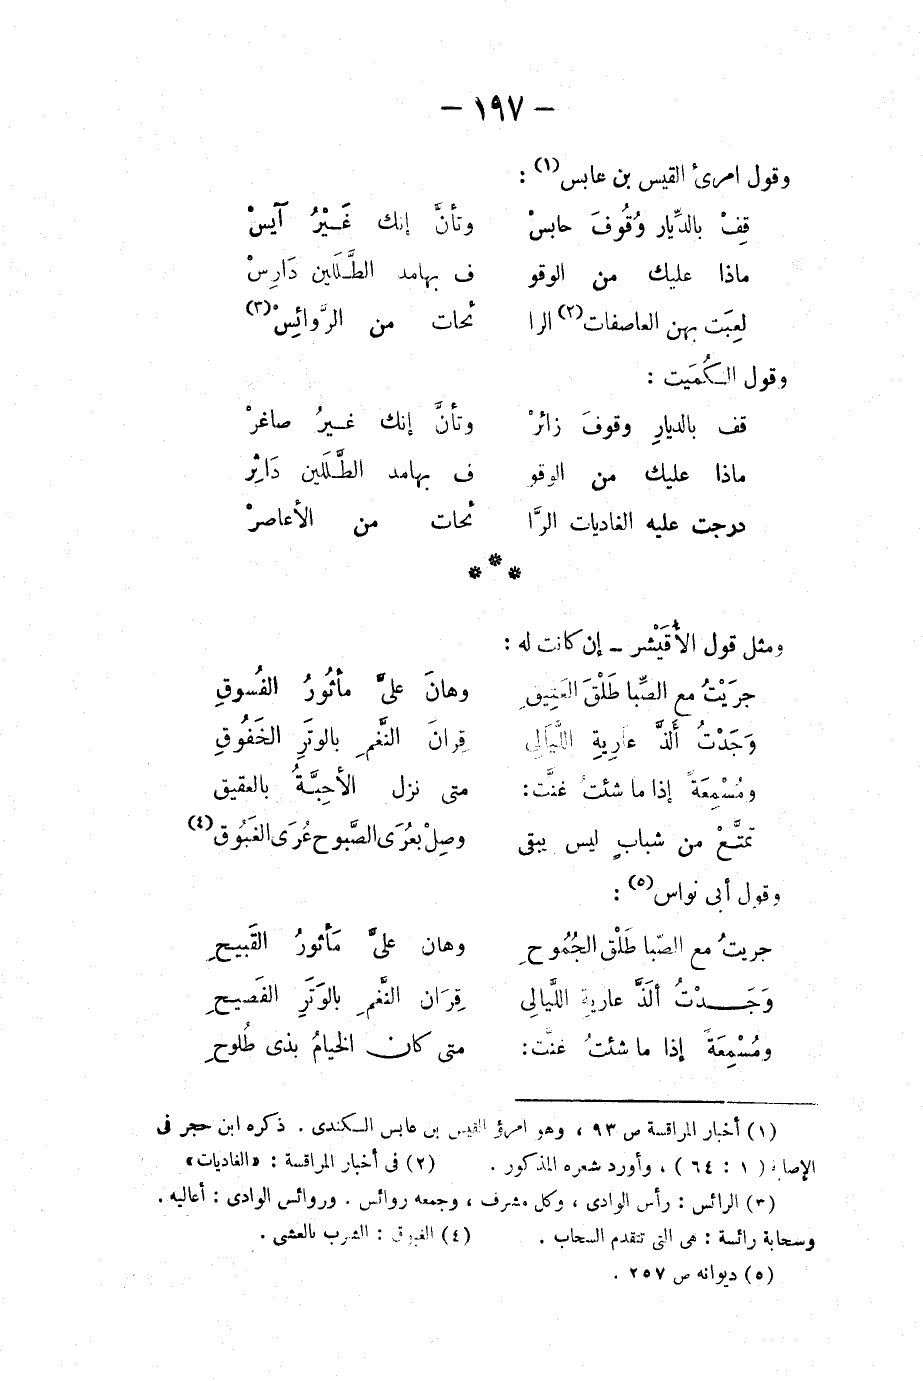 — ١٩٧ —
وقول امرئ القيس بن عابس(١) :
قِفْ بالدِّيار وُقُوفَ حابسْ وتأنَّ إنك غَيْرُ آيسْ
ماذا عليك من الوقو ف بهامد الطَّلَلين دَارِسْ
لعِبَت بهن العاصفات(٢) الرا ئحات من الرَّوائِسْ(٣)
وقول الكُمَيت :
قف بالديارِ وقوفَ زائرْ وتأنَّ إنك غيرُ صاغرْ
ماذا عليك من الوقو ف بهامد الطَّلَلين دَاثِرْ
درجت عليه الغاديات الرَّا ئحات من الأعاصرْ
***
ومثل قول الأُقَيْشر – إن كانت له :
جرَيْتُ مع الصِّبا طَلْقَ العَتِيقِ وهانَ علىَّ مأثُورُ الفُسوقِ
وَجَدْتُ أَلذَّ عارِيةِ اللَّيالِى قِرانَ النَّغمِ بالوتَرِ الخَفُوقِ
ومُسْمِعَةً إذا ما شئتُ غنَّت: متى نزل الأحِبَّةُ بالعقيق
تمتَّعْ من شبابٍ ليس يبقى وصِلْ بعُرَى الصَّبوح عُرَى الغَبُوق(٤)
وقول أبى نواس(٥) :
جريتُ مع الصِّبا طَلْق الجُمُوحِ وهان علىَّ مَأثورُ القَبيحِ
وَجَدْتُ ألَذَّ عاريةِ اللَّيالِى قِرَان النَّغمِ بالوَتَرِ الفَصيحِ
ومُسْمِعَةً إذا ما شئتُ غنَّت: متى كان الخيامُ بذى طُلوحِ
(١) أخبار المراقسة ص ٩٣ ، وهو امرؤ القيس بن عابس الكندى . ذكره ابن حجر فى
الإصابة ( ١ : ٦٤ ) ، وأورد شعره المذكور . (٢) فى أخبار المراقسة : «الغاديات»
(٣) الرائس : رأس الوادى ، وكل مشرف ، وجمعه روائس . وروائس الوادى : أعاليه .
وسحابة رائسة : هى التى تتقدم السحاب . (٤) الغبوق : الشرب بالعشى .
(٥) ديوانه ص ٢٥٧ .